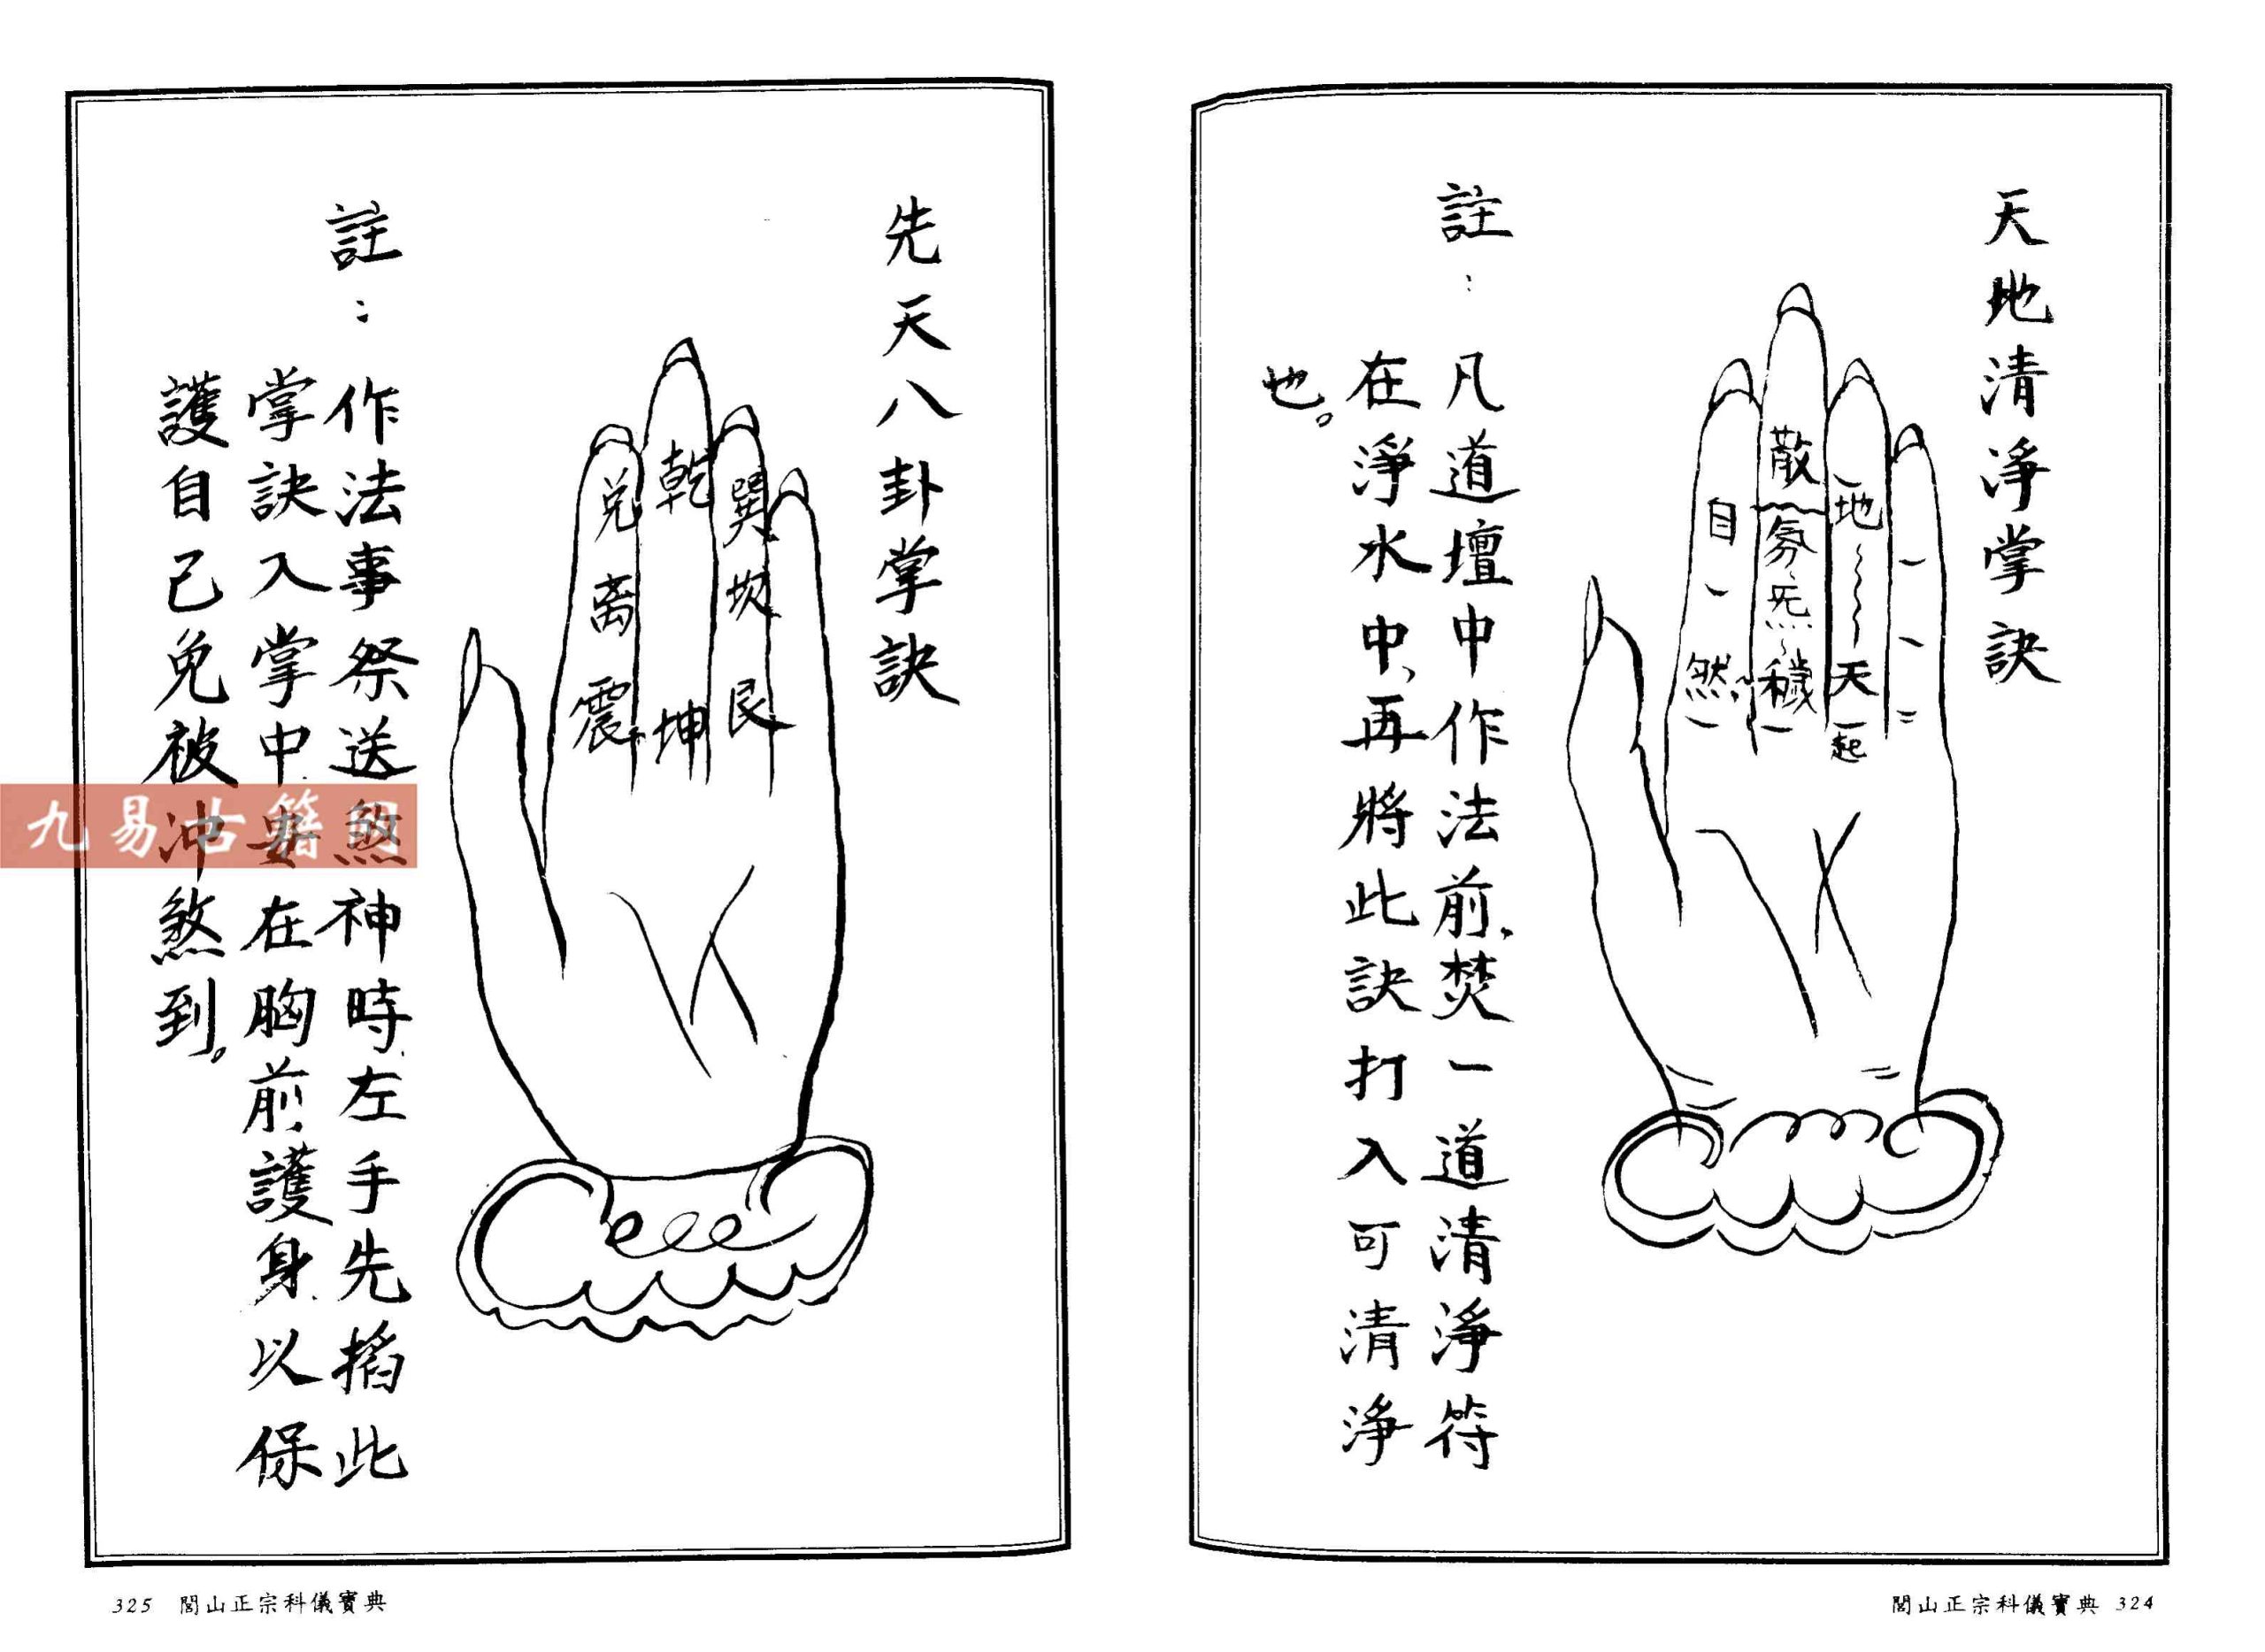 天地清淨掌訣
散
氛
炁
穢
地
天
起
自
然
註：凡道壇中作法前，焚一道清淨符
在淨水中，再將此訣打入可清淨
也。
閭山正宗科儀寶典 324
先天八卦掌訣
乾
坤
巽
坎
艮
兌
离
震
註：作法事祭送煞神時，左手先掐此
掌訣入掌中，在胸前，護身以保
護自己免被沖煞到。
九易古籍
325 閭山正宗科儀寶典